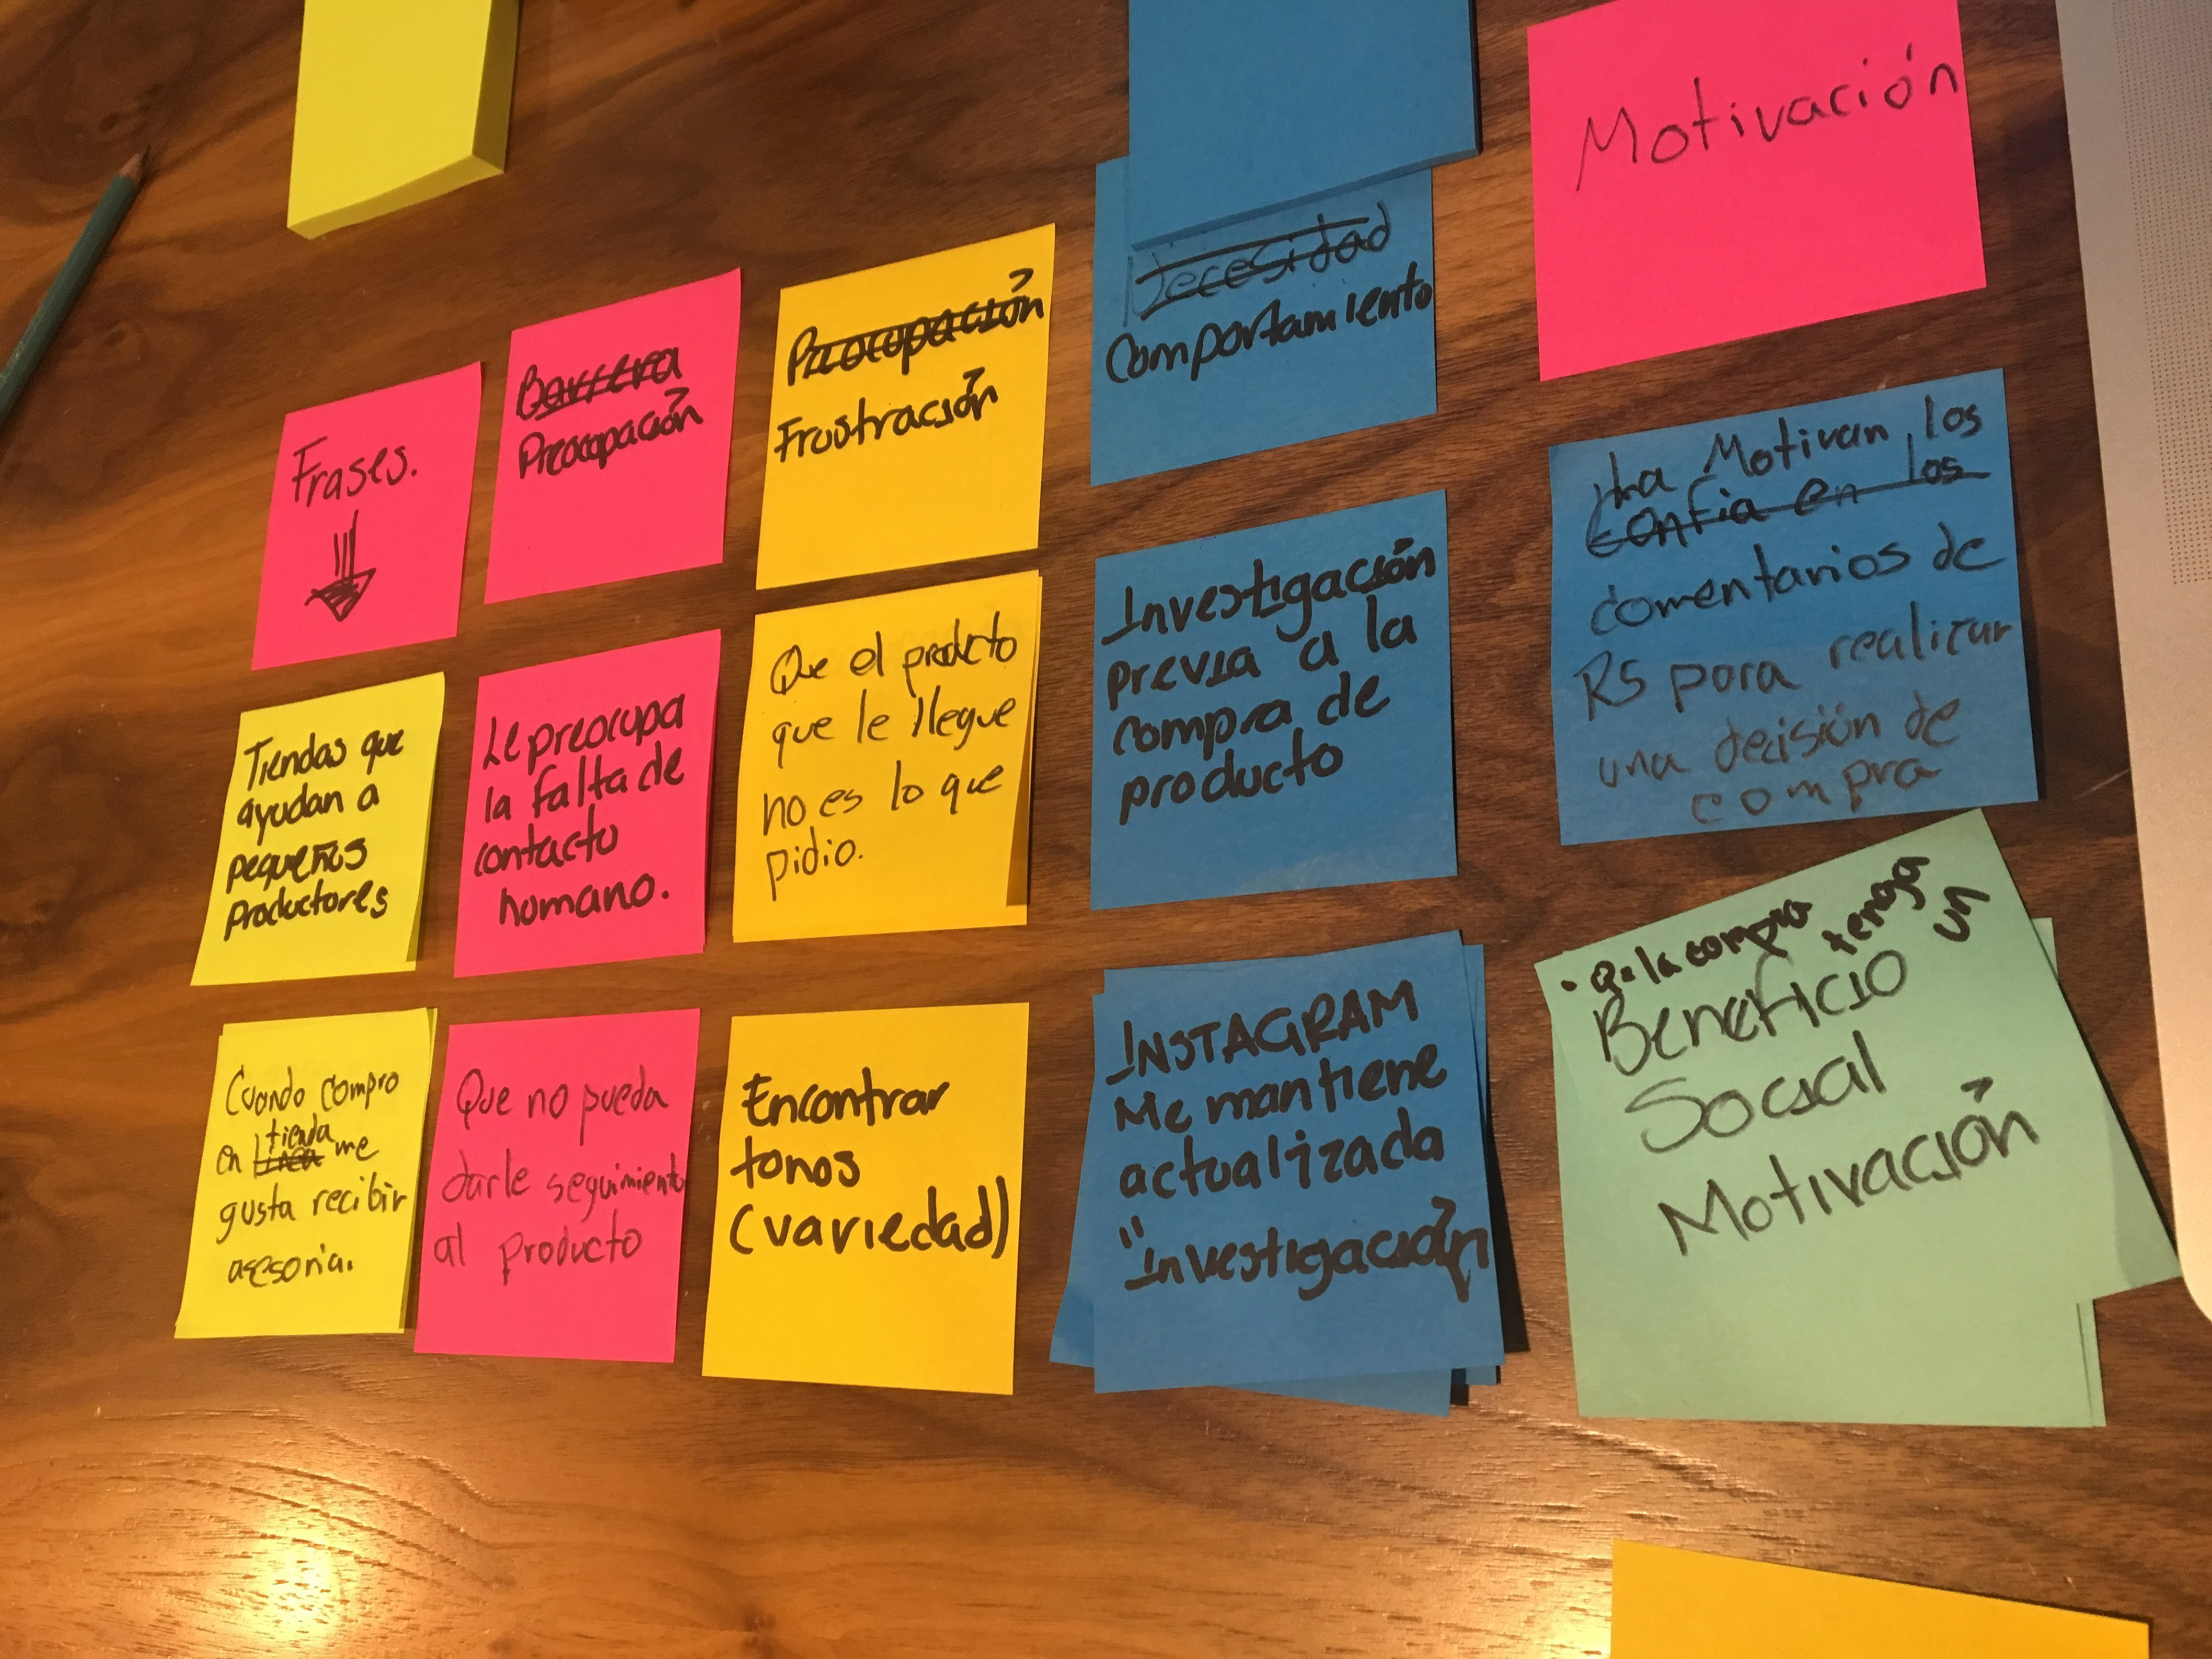 Frases.
Barrera
Preocupación
Preocupación
Frustración
Necesidad
Comportamiento
Motivación
Tiendas que
ayudan a
pequeños
productores
Le preocupa
la falta de
contacto
humano.
Que el producto
que le llegue
no es lo que
pidio.
Investigación
previa a la
compra de
producto
La Motivan los
confia en los
comentarios de
RS para realizar
una decisión de
compra
Cuando compro
en tienda
linea me
gusta recibir
asesoria.
Que no pueda
darle seguimiento
al producto
Encontrar
tonos
(variedad)
INSTAGRAM
Me mantiene
actualizada
"Investigación
• Q. la compra tenga
un
Beneficio
Social
Motivación